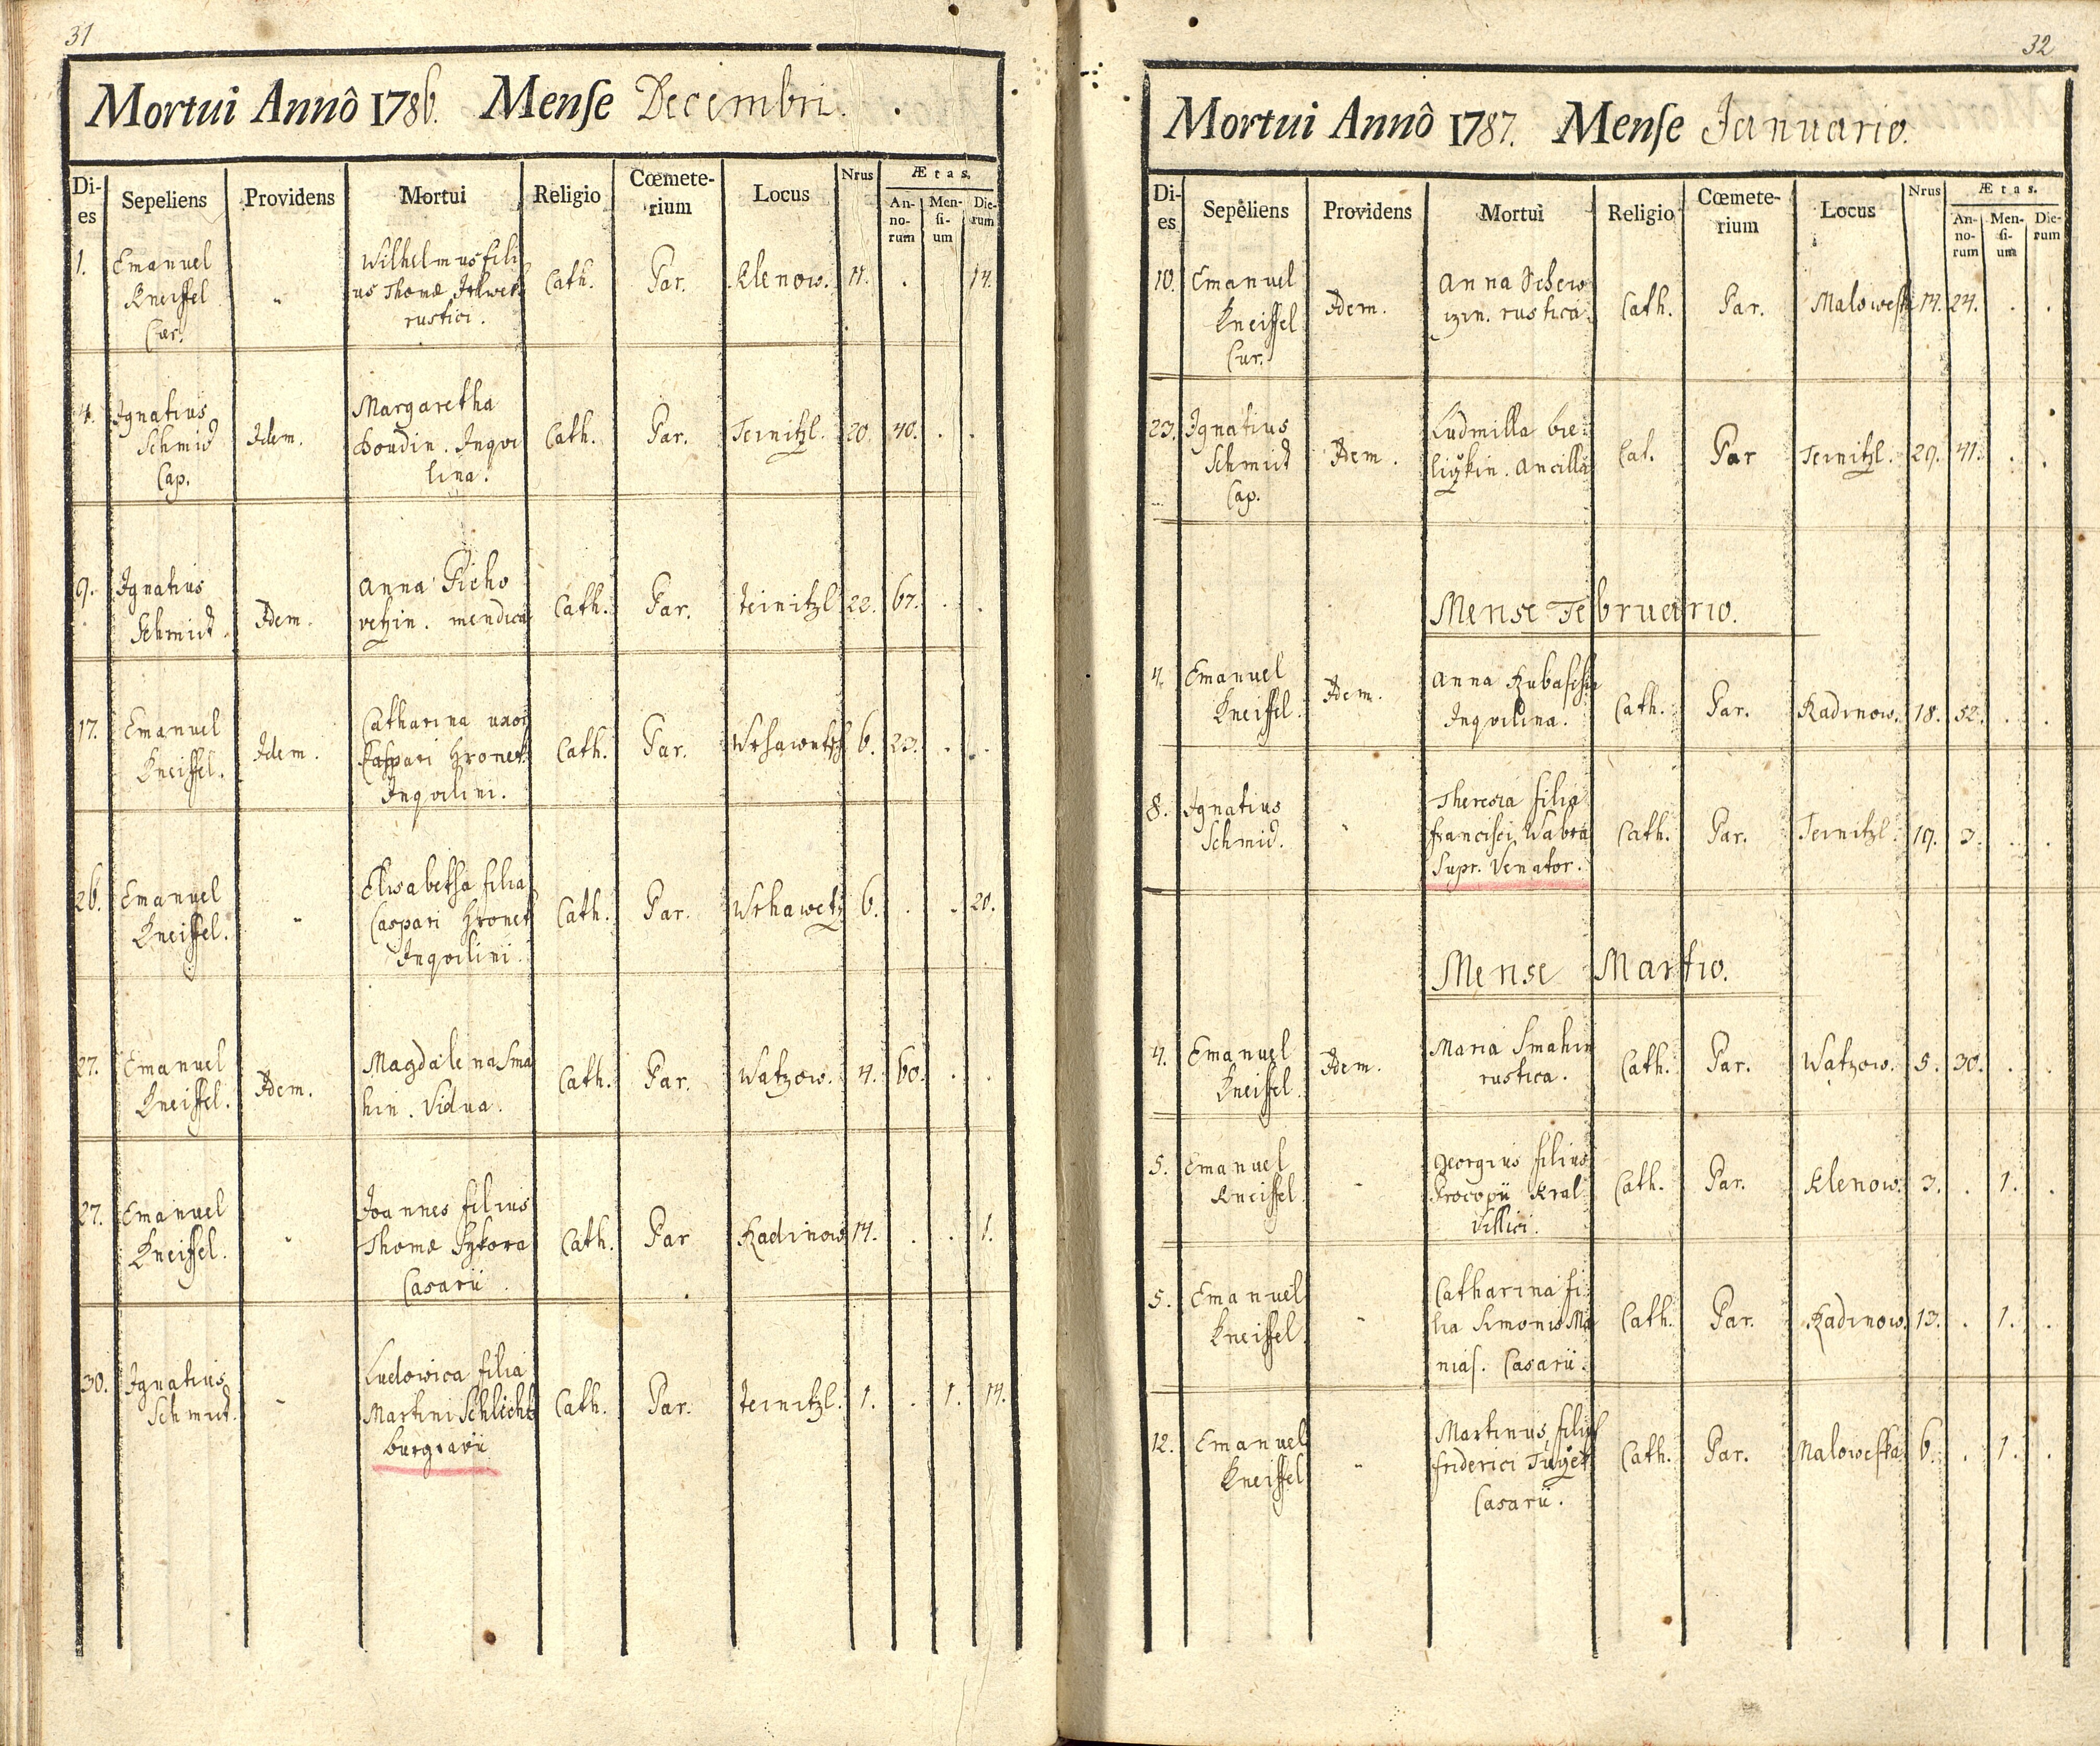 31
Mortui Annô 1786. Mense Decembri.
Di-es Sepeliens Providens Mortui Religio Cœmete-rium Locus Nrus Ætas.
An-no-rum Men-si-um Die-rum
1. Emanuel Kneissel Cur. Wilhelmus fili
us Thomæ
rustici. Cath. Par. Klenow. 11. . . 14.
4. Ignatius Schmid Cap. Idem. Margaretha
Boudin. Inqvi
lina. Cath. Par. Teinitzl. 20. 40. . .
9. Ignatius Schmid. Idem. Anna Picho
vetzin. mendica Cath. Par. Teinitzl 22. 67. . .
17. Emanuel Kneissel. Idem. Catharina uxor
Caspari Hronek
Inqvilini. Cath. Par. 6. 23. . .
26. Emanuel Kneissel. Elisabetha filia
Caspari Hronek
Inqvilini. Cath. Par. Wrhawetz 6. . . 20.
27. Emanuel Kneissel. Idem. Magdalena Sma
hin. Vidua. Cath. Par. Watzow. 4. 60. . .
27. Emanuel Kneissel. Joannes filius
Thomæ Sykora
Casarii. Cath. Par Kadinow 14. . . 1.
30. Ignatius Schmid. Ludowica filia
Martini Schlicht
burgravii Cath. Par. Teinitzl. 1. . 1. 14.
32
Mortui Annô 1787. Mense Januario.
Di-es Sepeliens Providens Mortui Religio Cœmete-rium Locus Nrus Ætas.
An-no-rum Men-si-um Die-rum
10. Emanuel Kneissel Cur. Idem. Anna Schew
izin. rustica. Cath. Par. Malowesk 14. 24. . .
23. Ignatius Schmid Cap. Idem. Ludmilla
Ancilla Cat. Par Teinitzl. 29. 41. . .
Mense Februario.
4. Emanuel Kneissel. Idem. Anna
Inqvilina. Cath. Par. Kadinow. 18. 52. . .
8. Ignatius Schmid. Theresia filia
Francisci Wabra
Supr. Venator. Cath. Par. Teinitzl. 19. 3. . .
Mense Martio.
4. Emanuel Kneissel. Idem. Maria Smahin
rustica. Cath. Par. Watzow. 5. 30. . .
5. Emanuel Kneissel. Georgius filius
Procopii Kral
Villici. Cath. Par. Klenow. 3. . 1. .
5. Emanuel Kneissel. Catharina fi
lia Simonis Ma
nias. Casarii. Cath. Par. Kadinow. 13. . 1. .
12. Emanuel Kneissel Martinus filius
friderici
Casarii. Cath. Par. Maloweska 6. . 1. .